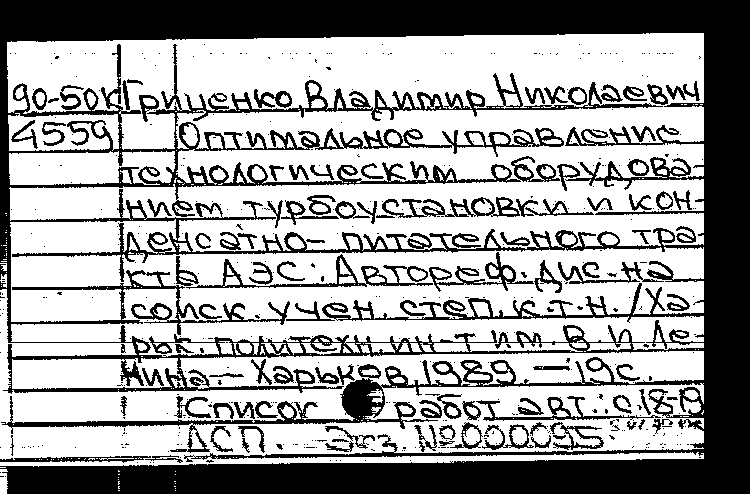 90-50к Гриценко, Владимир Николаевич
4559 Оптимальное управление
технологическим оборудова-
нием турбоустановки и кон-
денсатно-питательного тра-
кта АЭС: Автореф. дис. на
соиск. учен. степ. к.т.н. / Ха-
рьк. политехн. ин-т им. В. И. Ле-
нина. — Харьков, 1989. — 19 с.
Список работ авт.: с. 18-19
ДСП. Экз. № 000095.